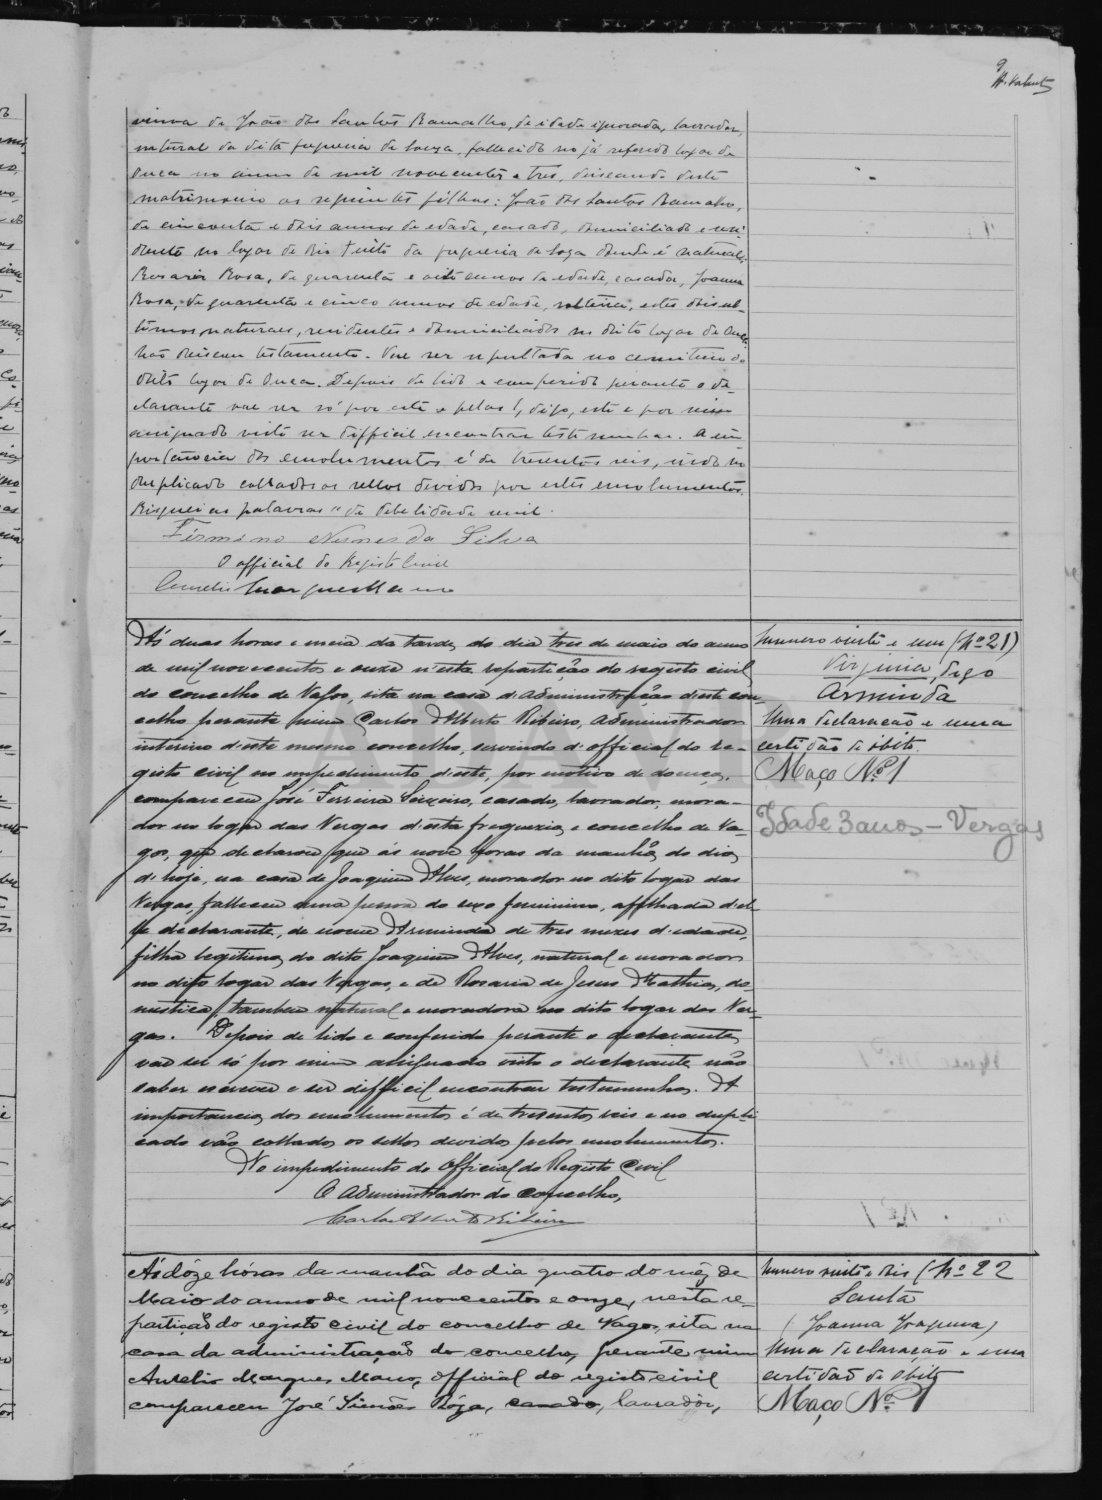 9
viuva de João dos Santos Ramalho, de idade ignorada, lavrador,
natural da dita freguesia de Souza, fallecido no já referido logar de
Ouca no anno de mil novecentos e tres, deixando deste
matrimonio os seguintes filhos: João dos Santos Ramalho,
de cincoenta e dois annos de edade, casado, domiciliado e resi-
dente no logar de Rio Tinto da freguesia de Soza donde é natural.
Rosaria Rosa, de quarenta e oito annos de edade, casada, Joanna
Rosa, de quarenta e cinco annos de edade, solteira, estes dois ul-
timos, naturaes, residentes e domiciliados no dito logar de Ouca.
Não deixou testamento. Vae ser sepultada no cemiterio do
dito logar de Ouca. Depois de lido e conferido perante o de-
clarante vae ser só por este e pelas t, digo, este e por mim
assignado visto ser difficil encontrar testemunhas. A im-
portancia dos emolumentos é de trezentos reis, indo no
duplicado collados os sellos devidos por estes emolumentos.
Risquei as palavras "de debilidade senil.
Firmino Nunes da Silva
O official do Registo Civil
Aurelio Marques Mano
Ás duas horas e meia da tarde, do dia tres de maio do anno
de mil novecentos e onze n'esta repartição do registo civil
do concelho de Vagos, sita na casa d'administração d'este con-
celho perante mim, Carlos Alberto Ribeiro, administrador
interino d'este mesmo concelho, servindo d'official do re-
gisto civil no impedimento d'este, por motivo de doença,
compareceu José Ferreira Seixeiro, casado, lavrador, mora-
dor no logar das Vergas d'esta freguezia, e concelho de Va-
gos, que declarou que ás nove horas da manhã, do dia
d'hoje, na casa de Joaquim Alves, morador no dito logar das
Vergas, falleceu uma pessoa do sexo feminino, afilhada d'el-
le declarante, de nome Arminda de tres mezes d'edade,
filha legitima do dito Joaquim Alves, natural e morador
no dito logar das Vergas, e de Rosaria de Jesus Mathias, do-
mestica, tambem natural e moradora no dito logar das Ver-
gas. Depois de lido e conferido perante o declarante,
vae ser só por mim assignado visto o declarante não
saber escrever e ser difficil encontrar testemunhas. A
importancia dos emolumentos é de tresentos reis e no dupli-
cado vão collados os sellos devidos pelos emolumentos.
No impedimento do Official do Registo Civil
O administrador do concelho,
Carlos Alberto Ribeiro
Numero vinte e um (Nº 21)
Virginia, digo
Arminda
Uma declaração e uma
certidão de óbito.
Maço Nº 1
Idade 3 anos - Vergas
Ás dôze hóras da manhã do dia quatro do mêz de
Maio do anno de mil novecentos e onze, nesta re-
partição do registo civil do concelho de Vagos, sita na
casa da administração do concelho, perante mim
Aurelio Marques Mano, official do registo civil
compareceu José Simões Róza, casado, lavradôr,
Numero vinte e dois (Nº 22
Santa
(Joanna Joaquina)
Uma declaração e uma
certidão de óbito
Maço Nº 1
ADAVR